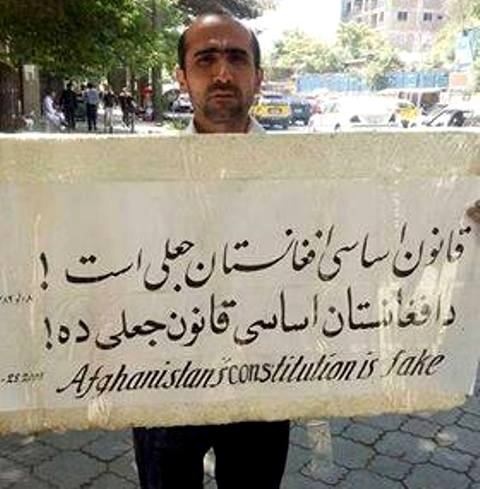 قانون اساسی افغانستان جعلی است !
د افغانستان اساسی قانون جعلی ده !
Afghanistan's constitution is fake